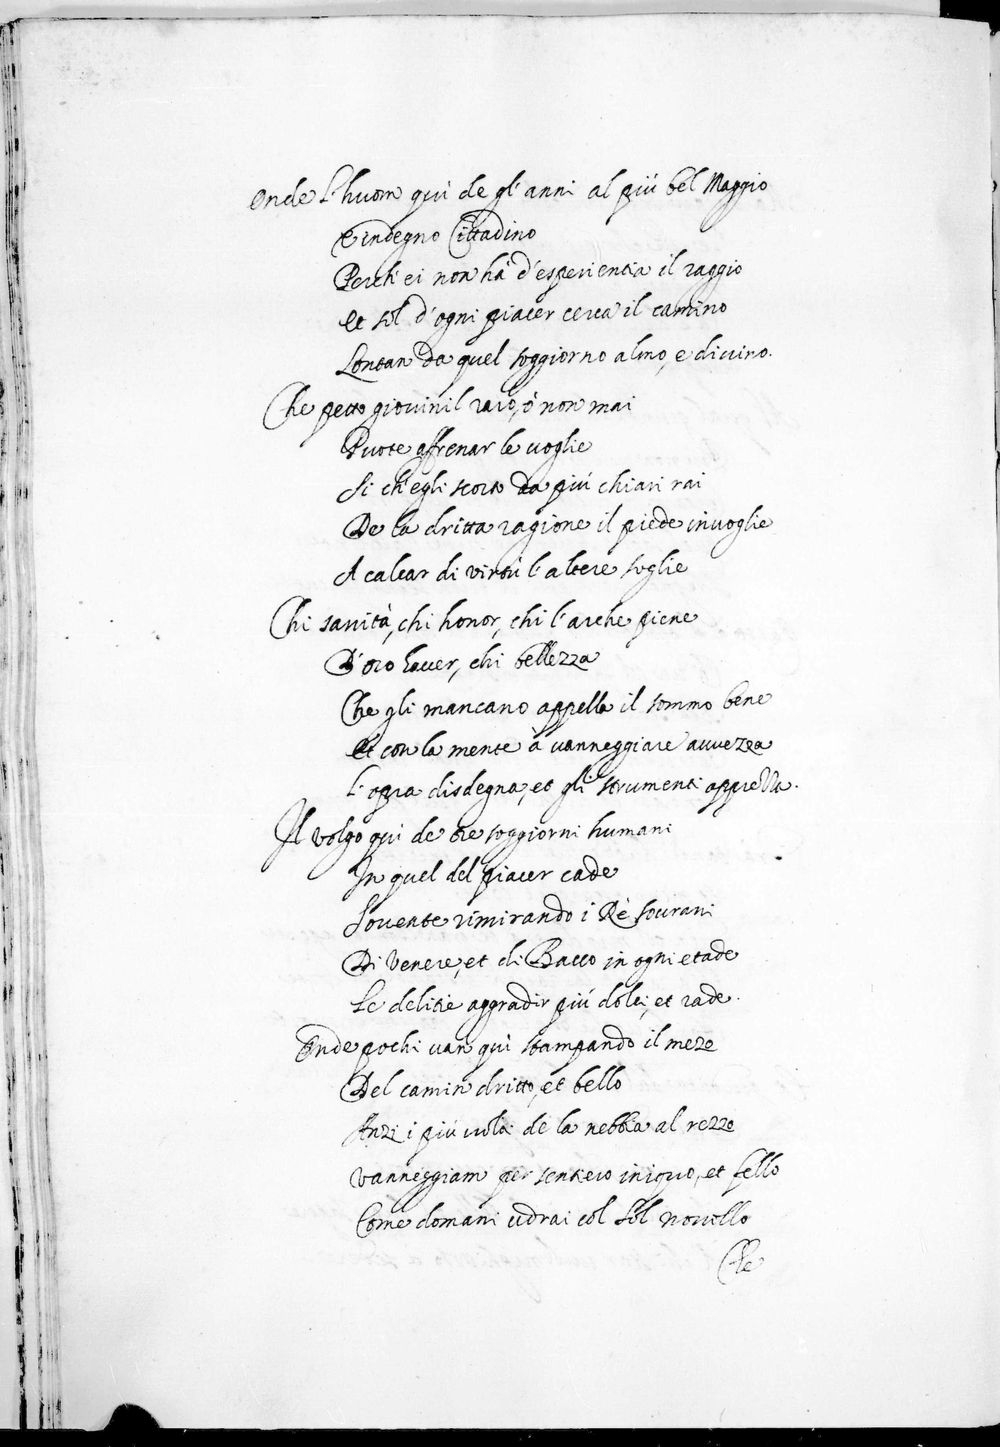 Onde l'huom qui de gl'anni al più bel Maggio
E indegno Cittadino
Perch'ei non hà d'esperientia il raggio
Et sol d'ogni piacer cerca il camino
Lontan da quel soggiorno almo, e divino.
Che petto giovinil raro, ò non mai
Puote affrenar le voglie
Si ch'egli scorto da più chiari rai
De la dritta ragione il piede invoglie
A calcar di virtù l'altere soglie
Chi sanità, chi honor, chi l'arche piene
D'oro haver, chi bellezza
Che gli mancano appella il sommo bene
Et con la mente à vanneggiare avvezza
L'opra disdegna, et gli strumenti apprezza.
Il volgo qui de tre soggiorni humani
In quel del piacer cade
Sovente rimirando i Rè sovrani
Di Venere, et di Bacco in ogni etade
Le delitie aggradir più dolci, et rade.
Onde pochi van quì stampando il mezo
Del camin dritto, et bello
Anzi i più volti de la nebbia al rezzo
Vanneggiam per sentiero iniquo, et fello
Come domani udrai col Sol novello
Che